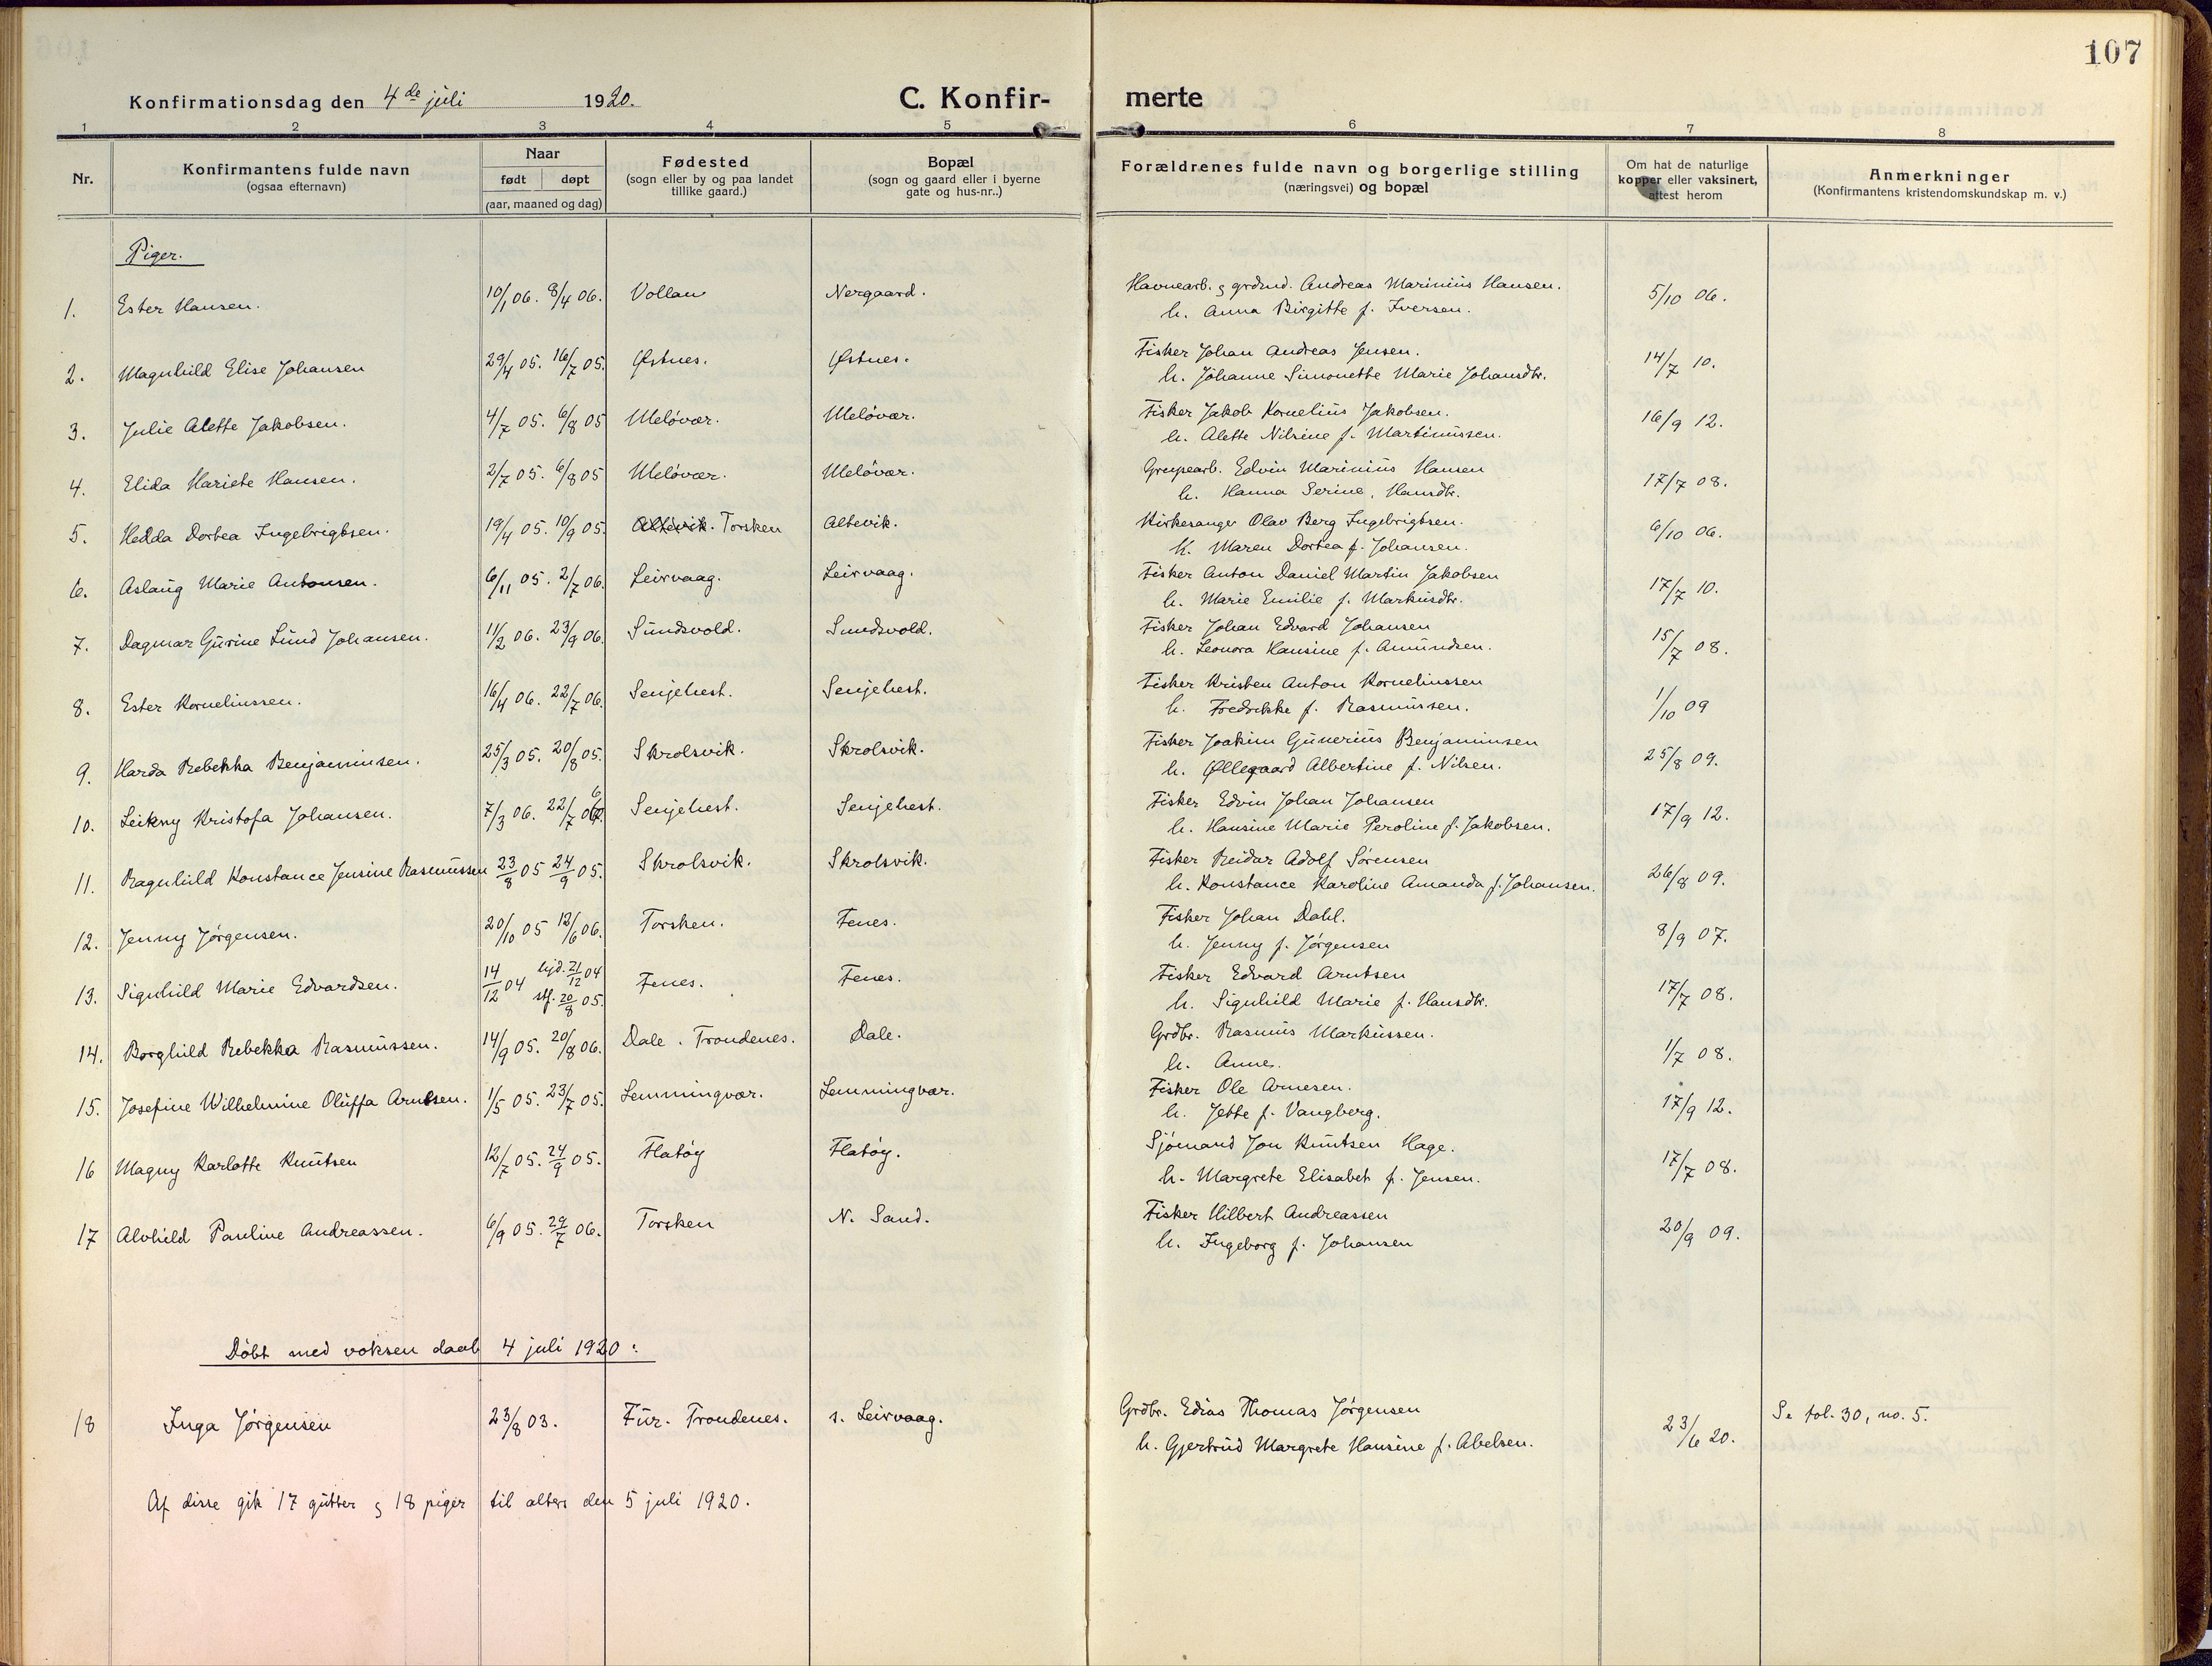 107
Konfirmationsdag den 4de juli 1920.
C. Konfir-merte
1 2 3 4 5 6 7 8
Nr.
Konfirmantens fulde navn
(ogsaa efternavn)
Naar
født døpt
(aar, maaned og dag)
Fødested
(sogn eller by og paa landet
tillike gaard.)
Bopæl
(sogn og gaard eller i byerne
gate og hus-nr..)
Forældrenes fulde navn og borgerlige stilling
(næringsvei) og bopæl
Om hat de naturlige
kopper eller vaksinert,
attest herom
Anmerkninger
(Konfirmantens kristendomskundskap m. v.)
Piger.
1. Ester Hansen. 10/1 06. 8/4 06. Vollan Nergaard. Havnearb. & grdmd. Andreas Marinius Hansen. 5/10 06.
h. Anna Birgitte f. Iversen.
2. Magnhild Elise Johansen 29/4 05. 16/7 05. Østnes. Østnes. Fisker Johan Andreas Jensen. 14/7 10.
h. Johanne Simonette Marie Johansdtr.
3. Julie Alette Jakobsen. 4/7 05. 6/8 05 Meløvær. Meløvær. Fisker Jakob Kornelius Jakobsen. 16/9 12.
h. Alette Nilsine f. Martinussen.
4. Elida Hariete Hansen. 2/7 05. 6/8 05 Meløvær. Meløvær. Edvin Marinius Hansen 17/7 08.
h. Hanna Serine, Hansdtr.
5. Hedda Dortea Ingebrigtsen. 19/4 05. 10/9 05. Altevik. Torsken Altevik. Kirkesanger Olav Berg Ingebrigtsen. 6/10 06.
h. Maren Dortea f. Johansen.
6. Aslaug Marie Antonsen. 6/11 05. 2/7 06. Leirvaag. Leirvaag. Fisker Anton Daniel Martin Jakobsen 17/7 10.
h. Marie Emilie f. Markusdtr.
7. Dagmar Gurine Lund Johansen. 11/2 06. 23/9 06. Sundsvold. Sundsvold. Fisker Johan Edvard Johansen 15/7 08.
h. Leonora Hansine f. Amundsen.
8. Ester Korneliussen. 16/4 06. 22/7 06. Senjehest. Senjehest. Fisker Kristen Anton Korneliussen 1/10 09
h. Fredrikke f. Rasmussen.
9. Harda Rebekka Benjaminsen. 25/3 05. 20/8 05. Skrolsvik. Skrolsvik. Fisker Joakim Gunerius Benjaminsen 25/8 09.
h. Øllegaard Albertine f. Nilsen.
10. Leikny Kristofa Johansen. 7/3 06. 22/7 06. Senjehest. Senjehest. Fisker Edvin Johan Johansen 17/9 12.
h. Hansine Marie Peroline f. Jakobsen.
11. Ragnhild Konstance Jensine Rasmussen 23/8 05 24/9 05. Skrolsvik. Skrolsvik. Fisker Reidar Adolf Sørensen 26/8 09.
h. Konstance Karoline Amanda f. Johansen.
12. Jenny Jørgensen. 20/10 05 12/6 06. Torsken. Fenes. Fisker Johan Dahl. 8/9 07.
h. Jenny f. Jørgensen
13. Signhild Marie Edvardsen. 14/12 04 hjd. 21/12 04 stf. 20/8 05. Fenes. Fenes. Fisker Edvard Arntsen 17/7 08.
h. Signhild Marie f. Hansdtr.
14. Borghild Rebekka Rasmussen. 14/9 05. 20/8 06. Dale. Trondenes. Dale. Grdbr. Rasmus Markussen. 1/7 08.
h. Anne.
15. Josefine Wilhelmine Oluffa Arntsen. 1/5 05. 23/7 05. Lemmingvær. Lemmingvær. Fisker Ole Arnesen. 17/9 12.
h. Jette f. Vangberg.
16 Magny Karlotte Knutsen 12/7 05. 24/9 05. Flatøy Flatøy. Sjømand Jon Knutsen Hage. 17/7 08.
h. Margrete Elisabet f. Jensen.
17 Alvhild Pauline Andreassen. 6/9 05. 29/7 06. Torsken N. Sand. Fisker Hilbert Andreassen 20/9 09.
h. Ingeborg f. Johansen
Døbt med voksen daab 4 juli 1920:
18 Inga Jørgensen 23/8 03. Fur. Trondenes. s. Leirvaag. Grdbr. Edias Thomas Jørgensen 23/6 20. Se fol. 30, no. 5.
h. Gjertrud Margrete Hansine f. Abelsen.
Af disse gik 17 gutter & 18 piger til alters den 5 juli 1920.